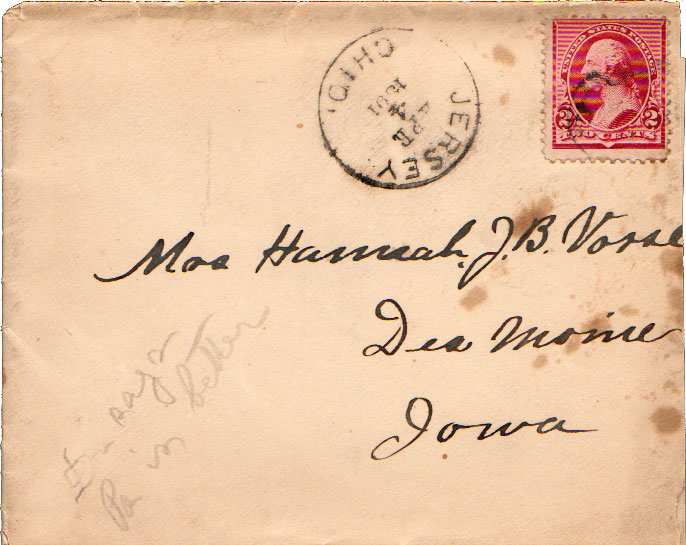 JERSEY OHIO
APR
4
1891
UNITED STATES POSTAGE
2 TWO CENTS 2
Mrs Hannah. J. B. Vosse
Des Moine
Iowa
says
Pa is better